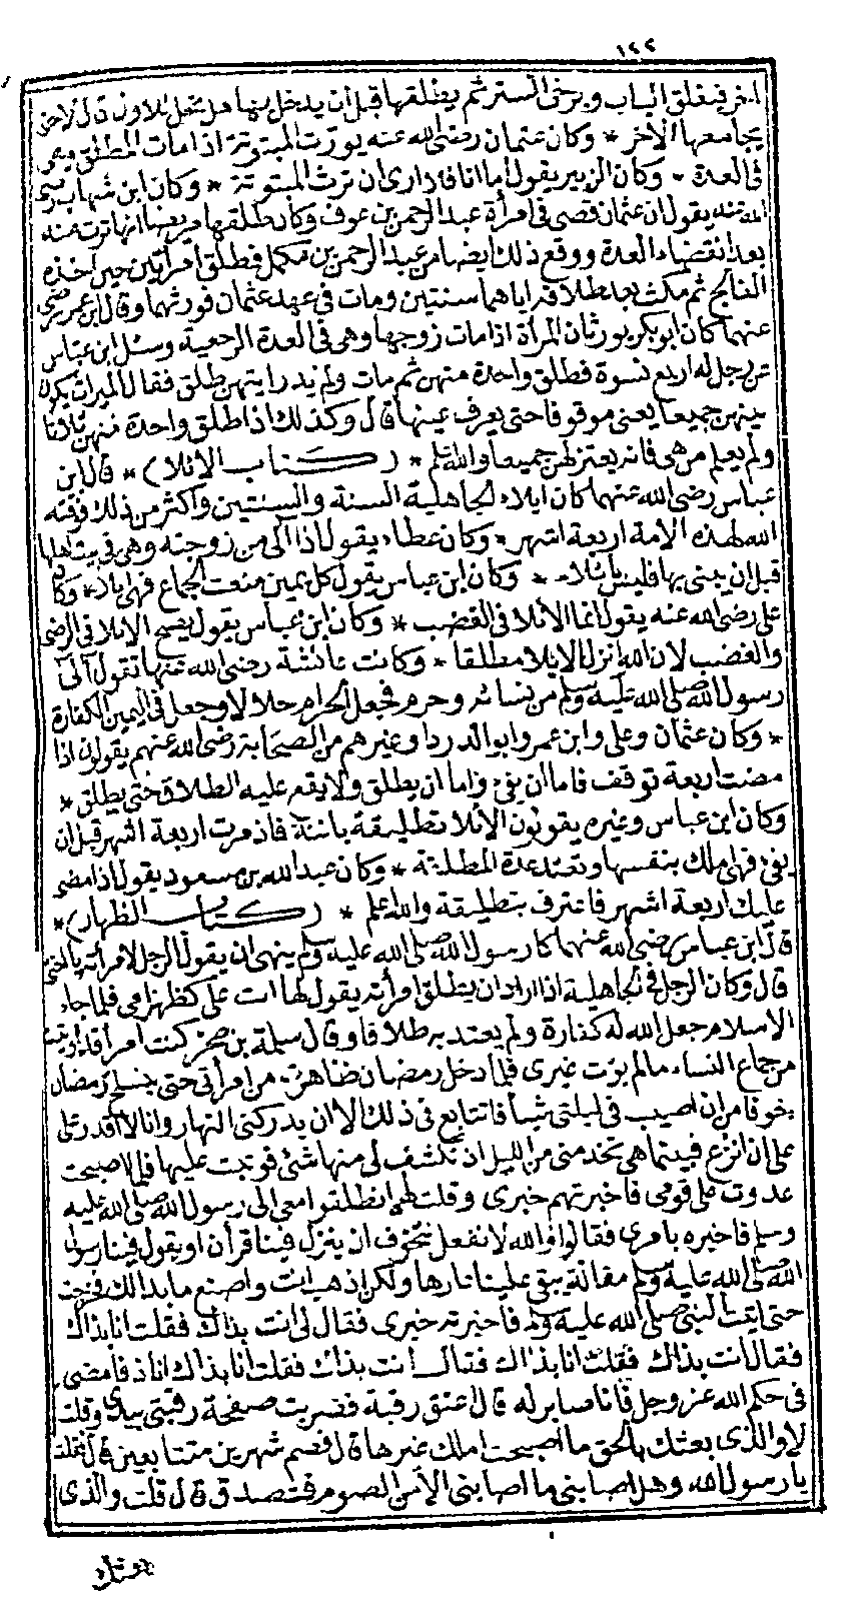 ١٤٢
آخر فيغلق الباب ويرخى الستر ثم يطلقها قبل أن يدخل بها هل تحل للاول قال لا حتى
يجامعها الآخر * وكان عثمان رضى الله عنه يورث المبتوتة اذا مات المطلق وهى
فى العدة * وكان الزبير يقول اما انا فلا ارى ان ترث المبتوتة * وكان ابن شهاب رضى
الله عنه يقول ان عثمان قضى فى امرأة عبد الرحمن بن عوف وكان طلقها مريضا انها ترث منه
بعد انقضاء العدة ووقع ذلك ايضا من عبد الرحمن بن مكمل فطلق امرأتين حين اخذه
الفالج ثم مكث بعد طلاقه اياهما سنتين ومات فى عهد عثمان فورثهما وقال ابن عمر رضى
عنهما كان ابو بكر يورثان المرأة اذا مات زوجها وهى فى العدة الرجعية وسئل ابن عباس
عن رجل له اربع نسوة فطلق واحدة منهن ثم مات ولم يدر ايتهن طلق فقال الميراث يكون
بينهن جميعا يعنى موقوفا حتى يعرف عينها قال وكذلك اذا طلق واحدة منهن ثلاثا
ولم يعلم من هى فانه يعتزلهن جميعا والله اعلم * (كتاب الايلاء) * قال ابن
عباس رضى الله عنهما كان ايلاء الجاهلية السنة والسنتين واكثر من ذلك فوقته
الله لهذه الامة اربعة اشهر * وكان عطاء يقول اذا آلى من زوجته وهى فى بيت اهلها
قبل ان يبنى بها فليس بايلاء * وكان ابن عباس يقول كل يمين منعت الجماع فهى ايلاء * وكان
على رضى الله عنه يقول انما الايلا فى الغضب * وكان ابن عباس يقول يصح الايلا فى الرضى
والغضب لان الله انزل الايلا مطلقا * وكانت عائشة رضى الله عنها تقول آلى
رسول الله صلى الله عليه وسلم من نسائه وحرم فجعل الحرام حلالا وجعل فى اليمين الكفارة
* وكان عثمان وعلى وابن عمر وابو الدردا وغيرهم من الصحابة رضى الله عنهم يقولون اذا
مضت اربعة توقف فاما ان يفئ واما ان يطلق ولا يقع عليه الطلاق حتى يطلق *
وكان ابن عباس وغيره يقولون الايلا تطليقة بائنة فاذ مرت اربعة اشهر قبل ان
يفئ فهى املك بنفسها وتعتد عدة المطلقة * وكان عبد الله بن مسعود يقول اذا مضى
عليك اربعة اشهر فاعترف بتطليقة والله اعلم * (كتاب الظهار) *
قال ابن عباس رضى الله عنهما كان رسول الله صلى الله عليه وسلم ينهى ان يقول الرجل لامرأته يا اختى
قال وكان الرجل فى الجاهلية اذا اراد ان يطلق امرأته يقول لها انت على كظهر امى فلما جاء
الاسلام جعل الله له كفارة ولم يعتد به طلاقا وقال سلمة بن صخر كنت امرأ قد اوتيت
من جماع النساء ما لم يؤت غيرى فلما دخل رمضان ظاهرت من امرأتى حتى ينسلخ رمضان
خوفا من ان اصيب فى ليلتى شيأ فاتتابع فى ذلك الا ان يدركنى النهار وانا لا اقدر على
على ان انزع فبينما هى تخدمنى من الليل ان تكشف لى منها شئ فوثبت عليها فلما اصبحت
غدوت على قومى فاخبرتهم خبرى وقلت لهم انطلقوا معى الى رسول الله صلى الله عليه
وسلم فاخبره بامرى فقالوا والله لا نفعل نتخوف ان ينزل فينا قرآن او يقول فينا رسول
الله صلى الله عليه وسلم مقالة يبقى علينا عارها ولكن اذهب انت واصنع ما بدالك فخرجت
حتى اتيت النبى صلى الله عليه وسلم فاخبرته خبرى فقال لى انت بذاك فقلت انا بذاك
فقال انت بذاك فقلت انا بذاك فقال انت بذاك فقلت انا بذاك انا ذ فامضى
فى حكم الله عز وجل فانا صابر له قال اعتق رقبة فضربت صفيحة رقبتى بيدى وقلت
لا والذى بعثك بالحق ما اصبحت املك غيرها قال فصم شهرين متتابعين قال فقلت
يا رسول الله وهل اصابنى ما اصابنى الا من الصوم فتصدق قال قلت والذى
بعثك